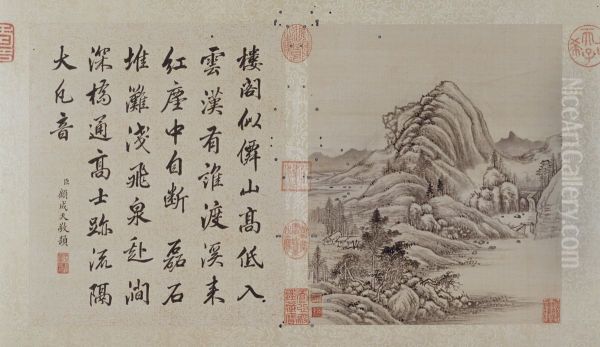 樓閣似僊山高低入
雲漢有誰渡溪來
紅塵中自斷 磊石
堆灘淺飛泉赴澗
深橋通高士跡流隔
大凡音
臣顧成天敬題
NiceArtGallery.com